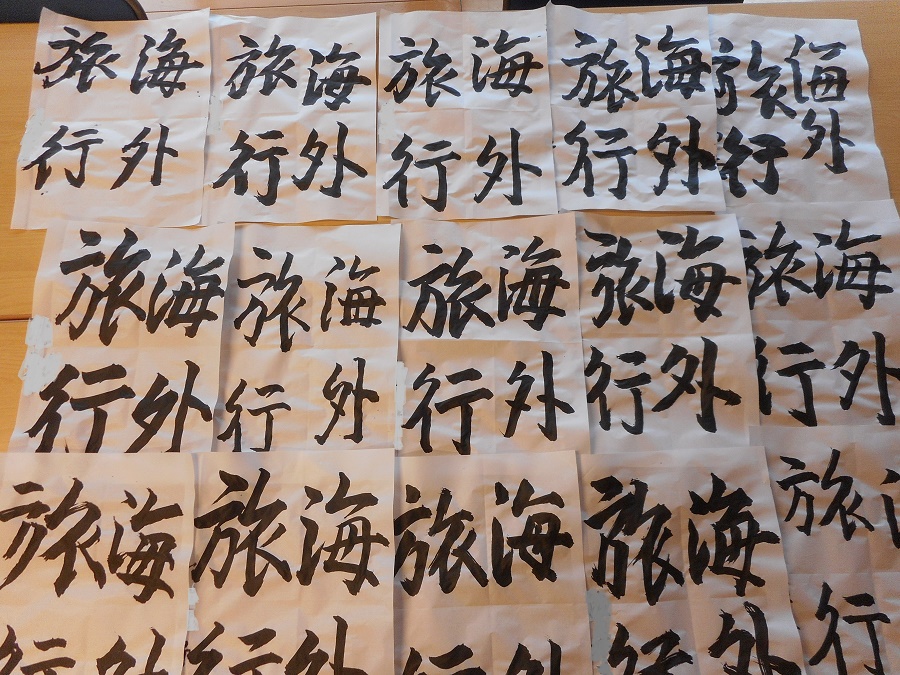 海外
旅行
海外
旅行
海外
旅行
海外
旅行
海外
旅行
海外
旅行
海外
旅行
海外
旅行
海外
旅行
海外
旅行
海外
旅行
海外
旅行
海外
旅行
海外
旅行
旅行